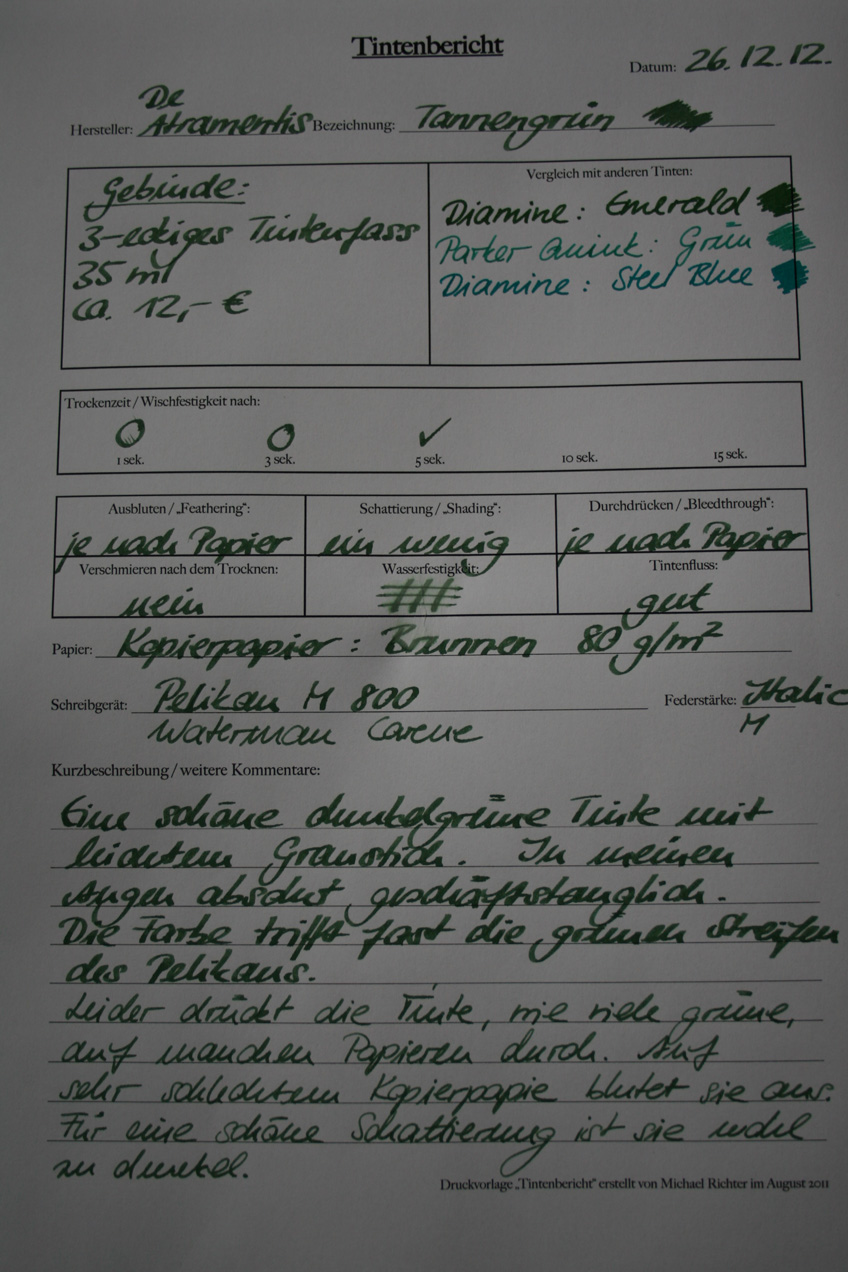 Tintenbericht
Datum: 26.12.12.
De
Hersteller: Atramentis Bezeichnung: Tannengrün
Gebinde:
3-eckiges Tintenfass
35 ml
ca. 12,- €
Vergleich mit anderen Tinten:
Diamine: Emerald
Parker Quink: Grün
Diamine: Steel Blue
Trockenzeit / Wischfestigkeit nach:
✓
1 sek. 3 sek. 5 sek. 10 sek. 15 sek.
Ausbluten / „Feathering": Schattierung / „Shading": Durchdrücken / „Bleedthrough":
je nach Papier ein wenig je nach Papier
Verschmieren nach dem Trocknen: Wasserfestigkeit: Tintenfluss:
nein gut
Papier: Kopierpapier: Brunnen 80 g/m²
Schreibgerät: Pelikan M 800 Federstärke: Italic
Waterman Carene M
Kurzbeschreibung / weitere Kommentare:
Eine schöne dunkelgrüne Tinte mit
leichtem Graustich. In meinen
Augen absolut geschäftstauglich.
Die Farbe trifft fast die grünen Streifen
des Pelikans.
Leider drückt die Tinte, wie viele grüne,
auf manchen Papieren durch. Auf
sehr schlechtem Kopierpapie blutet sie aus.
Für eine schöne Schattierung ist sie wohl
zu dunkel.
Druckvorlage „Tintenbericht" erstellt von Michael Richter im August 2011